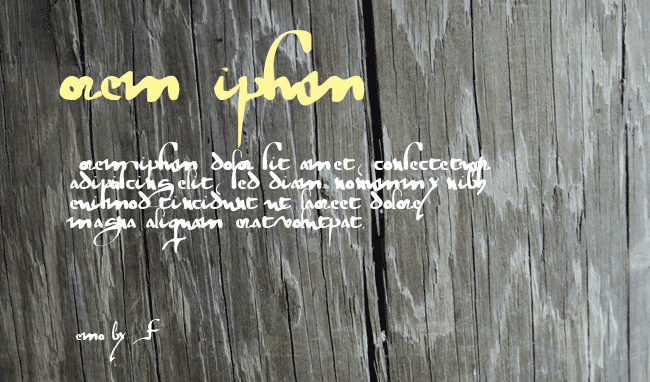 orem ipsum
orem ipsum dolor sit amet, consectetuer
adipiscing elit, sed diam nonummy nibh
euismod tincidunt ut laoreet dolore
magna aliquam erat volutpat.
emo by